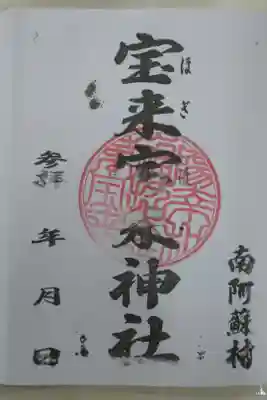 南阿蘇村
ほぎ
宝来宝来神社
参拝 年 月 日